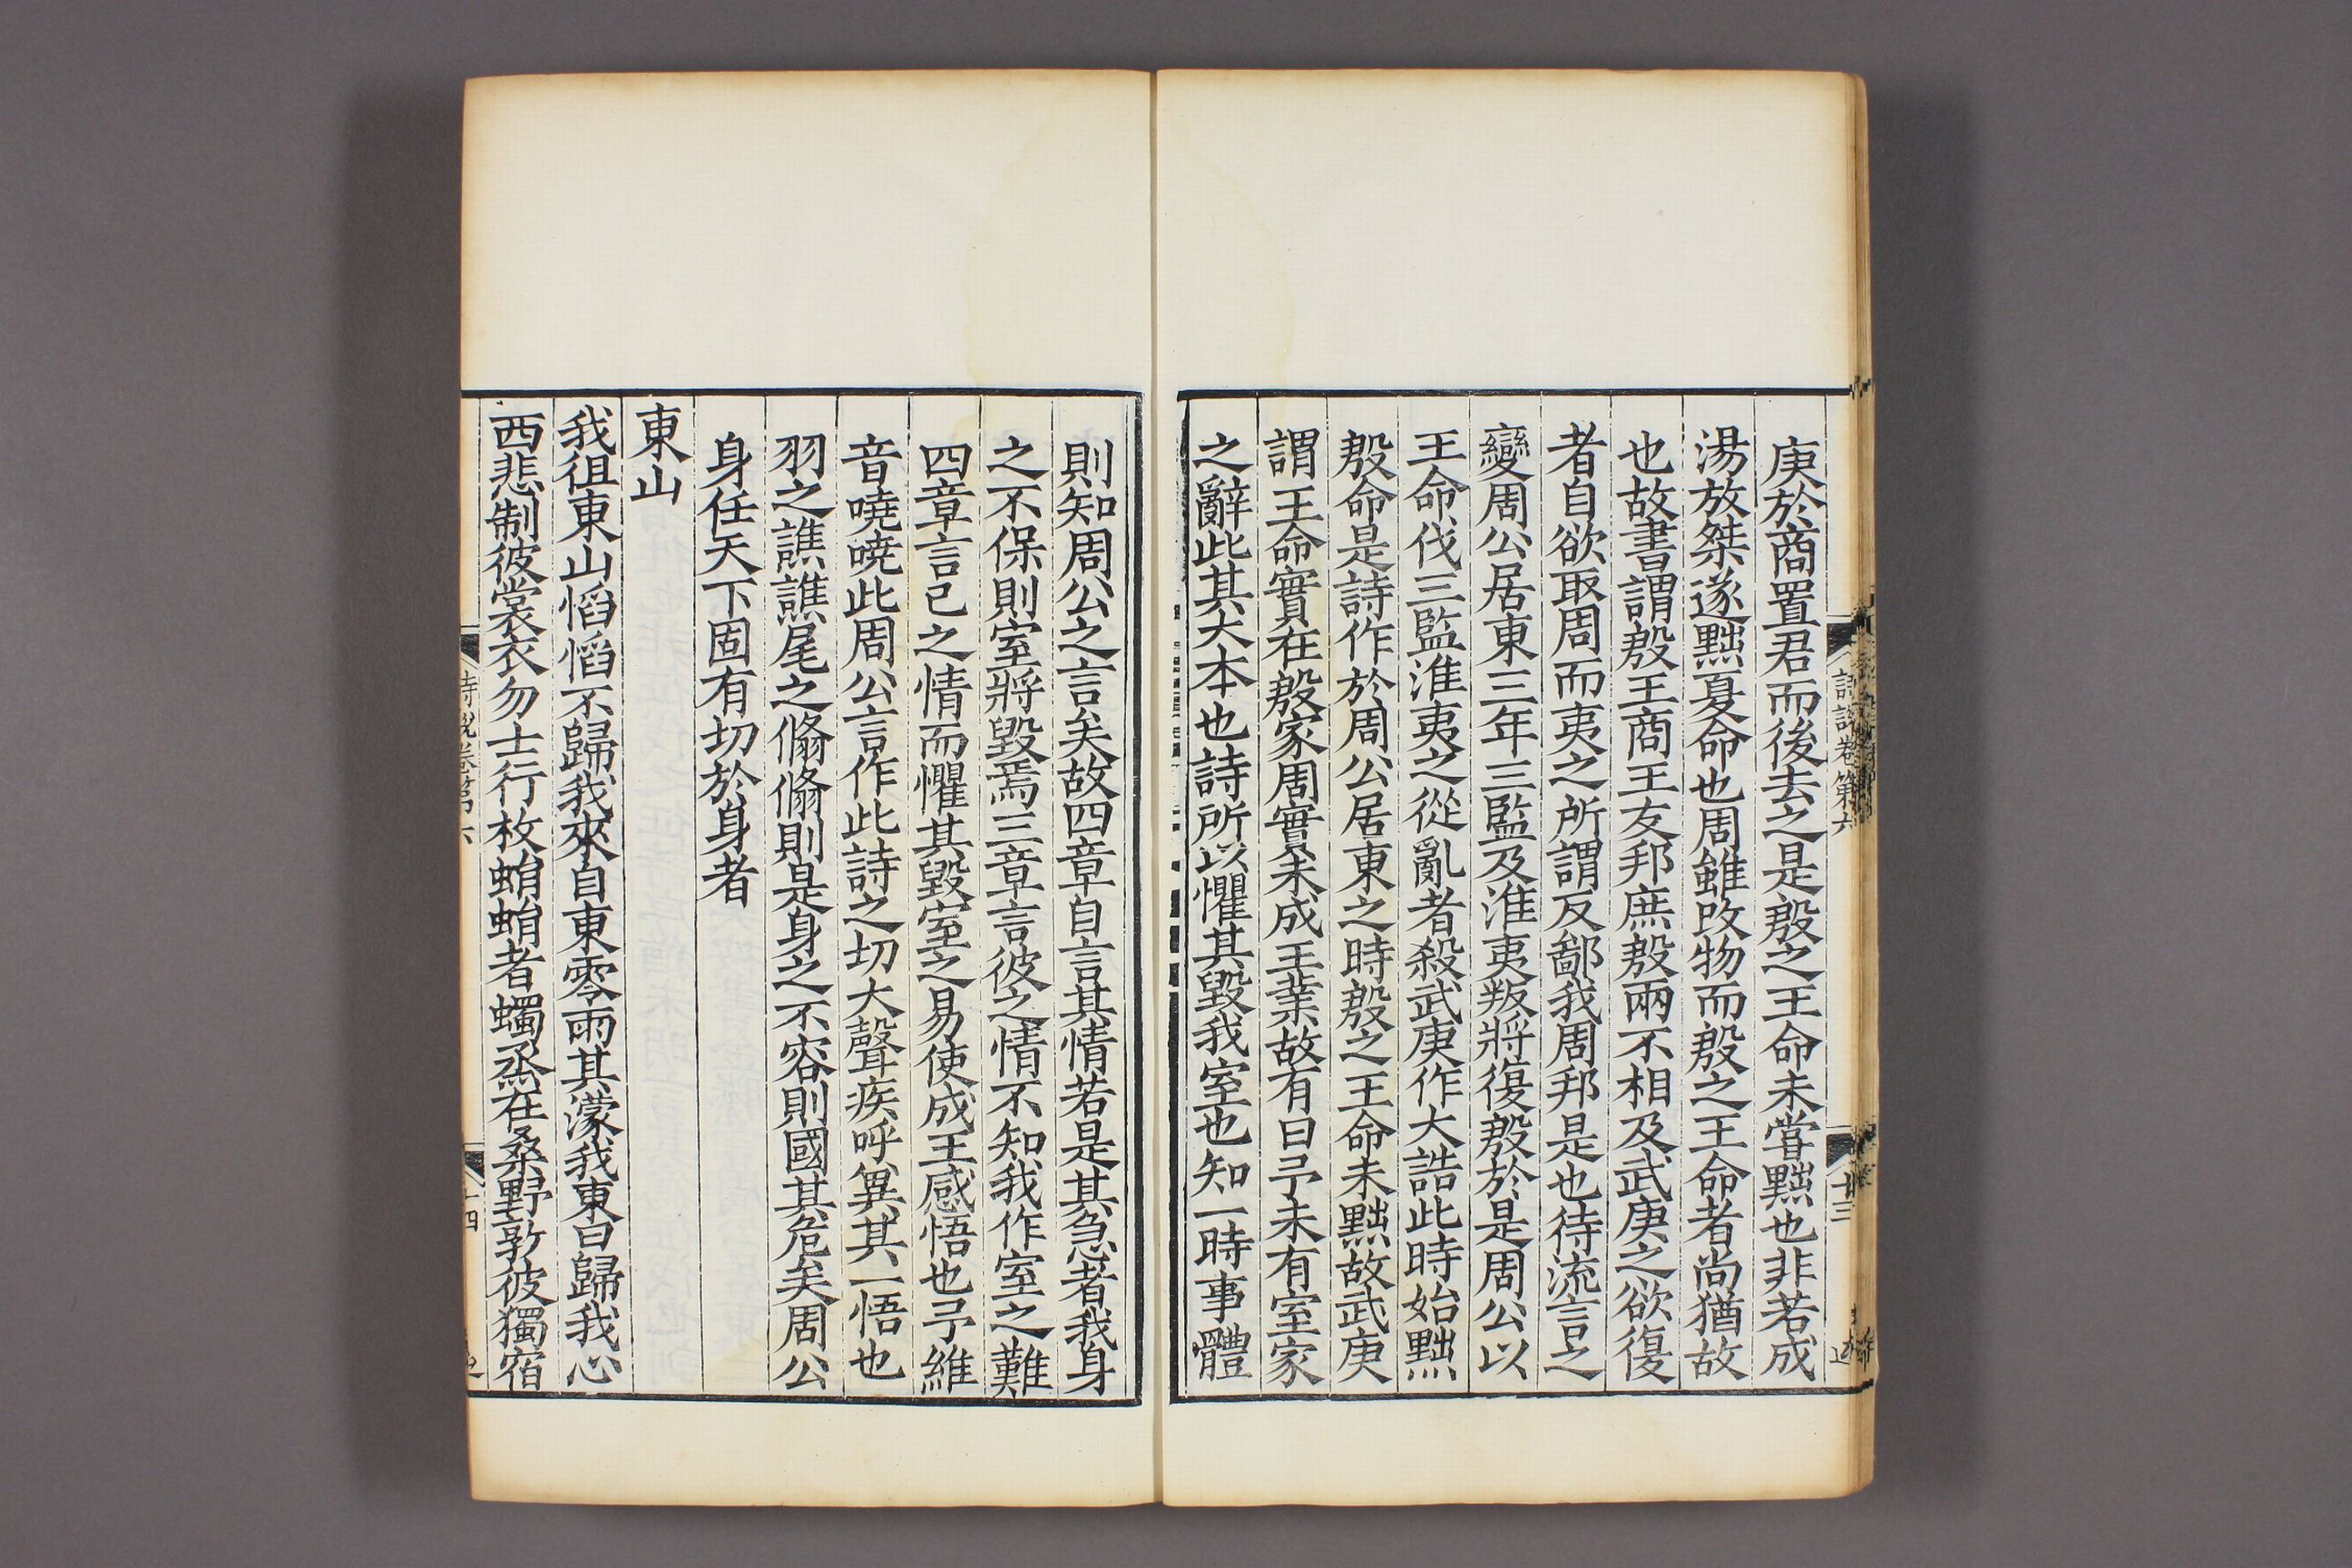 詩說卷第六
十三
庚於商置君而後去之是殷之王命未嘗黜也非若成
湯放桀遂黜夏命也周雖改物而殷之王命者尚猶故
也故書謂殷王商王友邦庶殷兩不相及武庚之欲復
者自欲取周而夷之所謂反鄙我周邦是也待流言之
變周公居東三年三監及淮夷叛將復殷於是周公以
王命伐三監淮夷之從亂者殺武庚作大誥此時始黜
殷命是詩作於周公居東之時殷之王命未黜故武庚
謂王命實在殷家周實未成王業故有曰予未有室家
之辭此其大本也詩所以懼其毀我室也知一時事體
則知周公之言矣故四章自言其情若是其急者我身
之不保則室將毀焉三章言彼之情不知我作室之難
四章言己之情而懼其毀室之易使成王感悟也予維
音嘵嘵此周公言作此詩之切大聲疾呼兾其一悟也
羽之譙譙尾之翛翛則是身之不容則國其危矣周公
身任天下固有切於身者
東山
我徂東山慆慆不歸我來自東零雨其濛我東曰歸我心
西悲制彼裳衣勿士行枚蜎蜎者蠋烝在桑野敦彼獨宿
詩說卷第六
十四